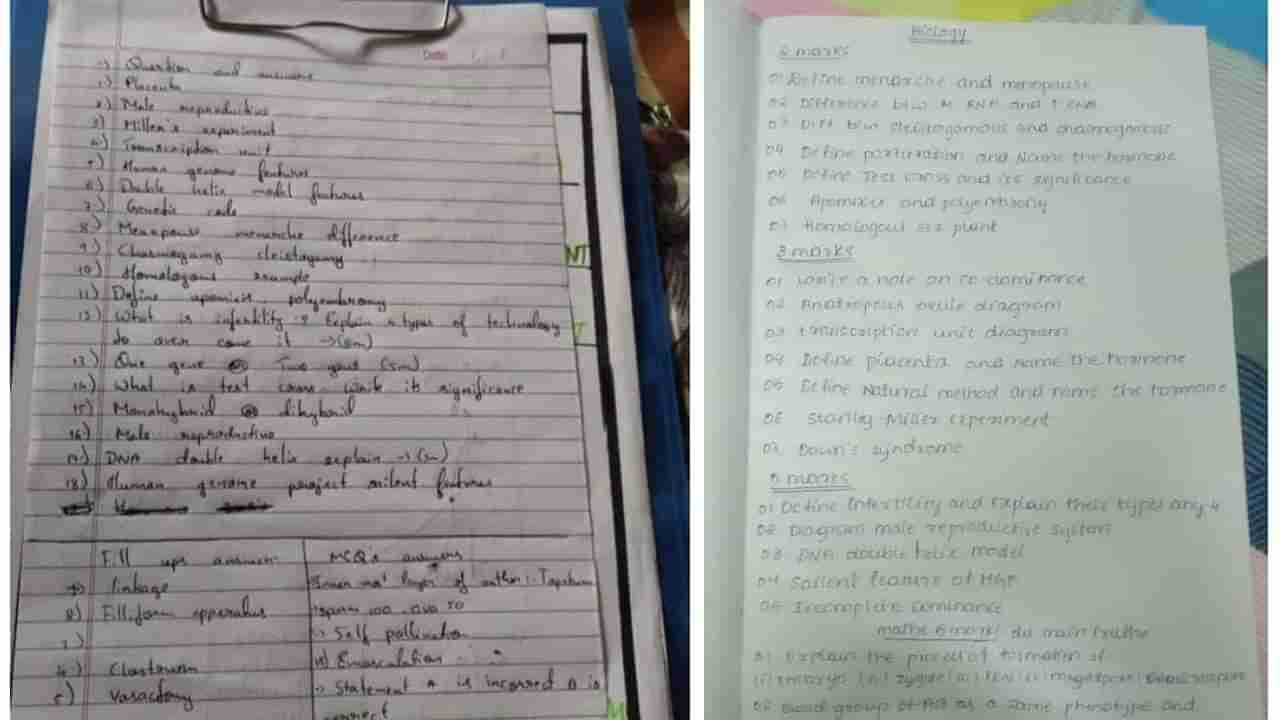 Date
Question and answers
1) Placenta
2) Male reproductive
3) Miller's experiment
4) Transcription unit
5) Human genome features
6) Double helix model features
7) Genetic code
8) Menopause menarche difference
9) Chasmogamy cleistogamy
10) Homologous example
11) Define apomixis, polyembryony
12) What is infertility ? Explain 4 types of technology
to over come it → (5m)
13) One gene Two gene (5m)
14) What is test cross write its significance
15) Monohybrid dihybrid
16) Male reproductive
17) DNA double helix explain → (5m)
18) Human genome project silent features
Fill ups answer
linkage
Filliform apparatus
Vasactomy
MCQ's answers
Inner most layer of anther : Tapetum
Self pollination
Emasculation
Statement A is incorrect B is
correct
NT
Biology
2 marks
01 Define menarche and menopause
02 Difference b/w M RNA and T RNA
03 Diff b/w cleistogamous and chasmogamous
04 Define parturation and Name the hormone
05 Define Test cross and its significance
06 Apomixis and polyembryony
07 Homologous
3 marks
01 Write a note on co-dominance
02 Anatropous ovule diagram
03 transcription unit diagram
04 Define placenta and Name the hormone
05 Define Natural method and name the hormone
06 Stanlley-Miller Experiment
07 Down's syndrome
5 marks
01 Define Infertility and Explain their types any 4
02 Diagram male reproductive system
03 DNA double helix model
04 Salient feature of HGP
05 Incomplete Dominance
01 Explain the process of formation of
02 Blood group of AB as a same phenotype and